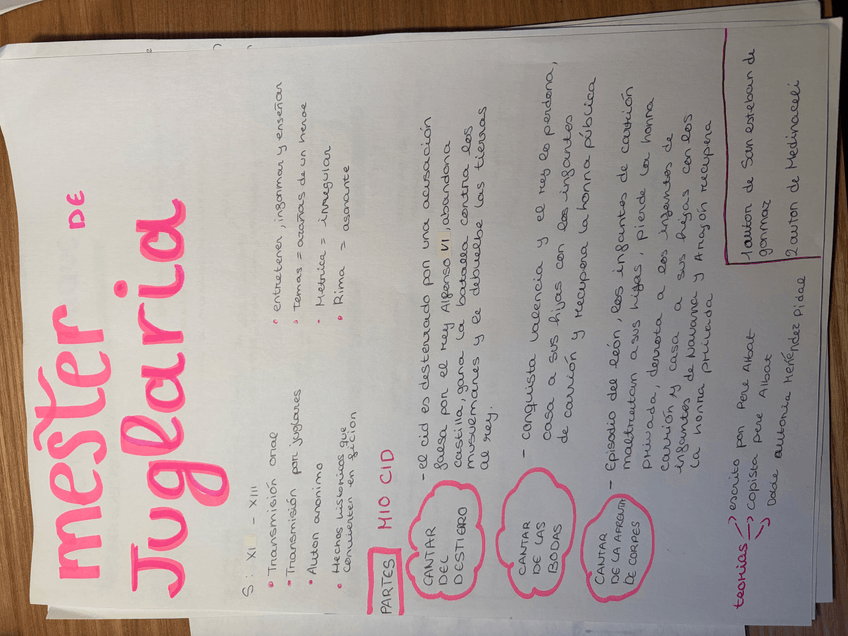 mester DE
Juglaria
S: XI - XIII
• Transmisión oral
• Transmisión por juglares
• Autor anonimo
• Hechos históricos que
convierten en ficcion
• entretener, informar y enseñar
• Temas = azañas de un heroe
• Metrica = irregular
• Rima = asonante
PARTES MIO CID
CANTAR
DEL
DESTIERO
- el cid es desterrado por una acusación
falsa por el rey Alfonso VI, abandona
castilla, gana la batalla contra los
musulmanes y le debuelbe las tierras
al rey.
CANTAR
DE LAS
BODAS
- conquista valencia y el rey lo perdona,
casa a sus hijas con los infantes
de carrión y recupera la honra pública
CANTAR
DE LA AFRENTA
DE CORPES
- Episodio del león, los infantes de carrión
maltretan a sus higas, pierde la honra
privada, derrota a los infantes de
carrión y casa a sus hijas con los
infantes de Navarra y Aragón recupera
la honra privada
teorias
escrito por Pere Albat
copista pere Albat
Dade autoria Menéndez Pidal
1 autor de San esteban de
gormaz
2 autor de Medinaceli